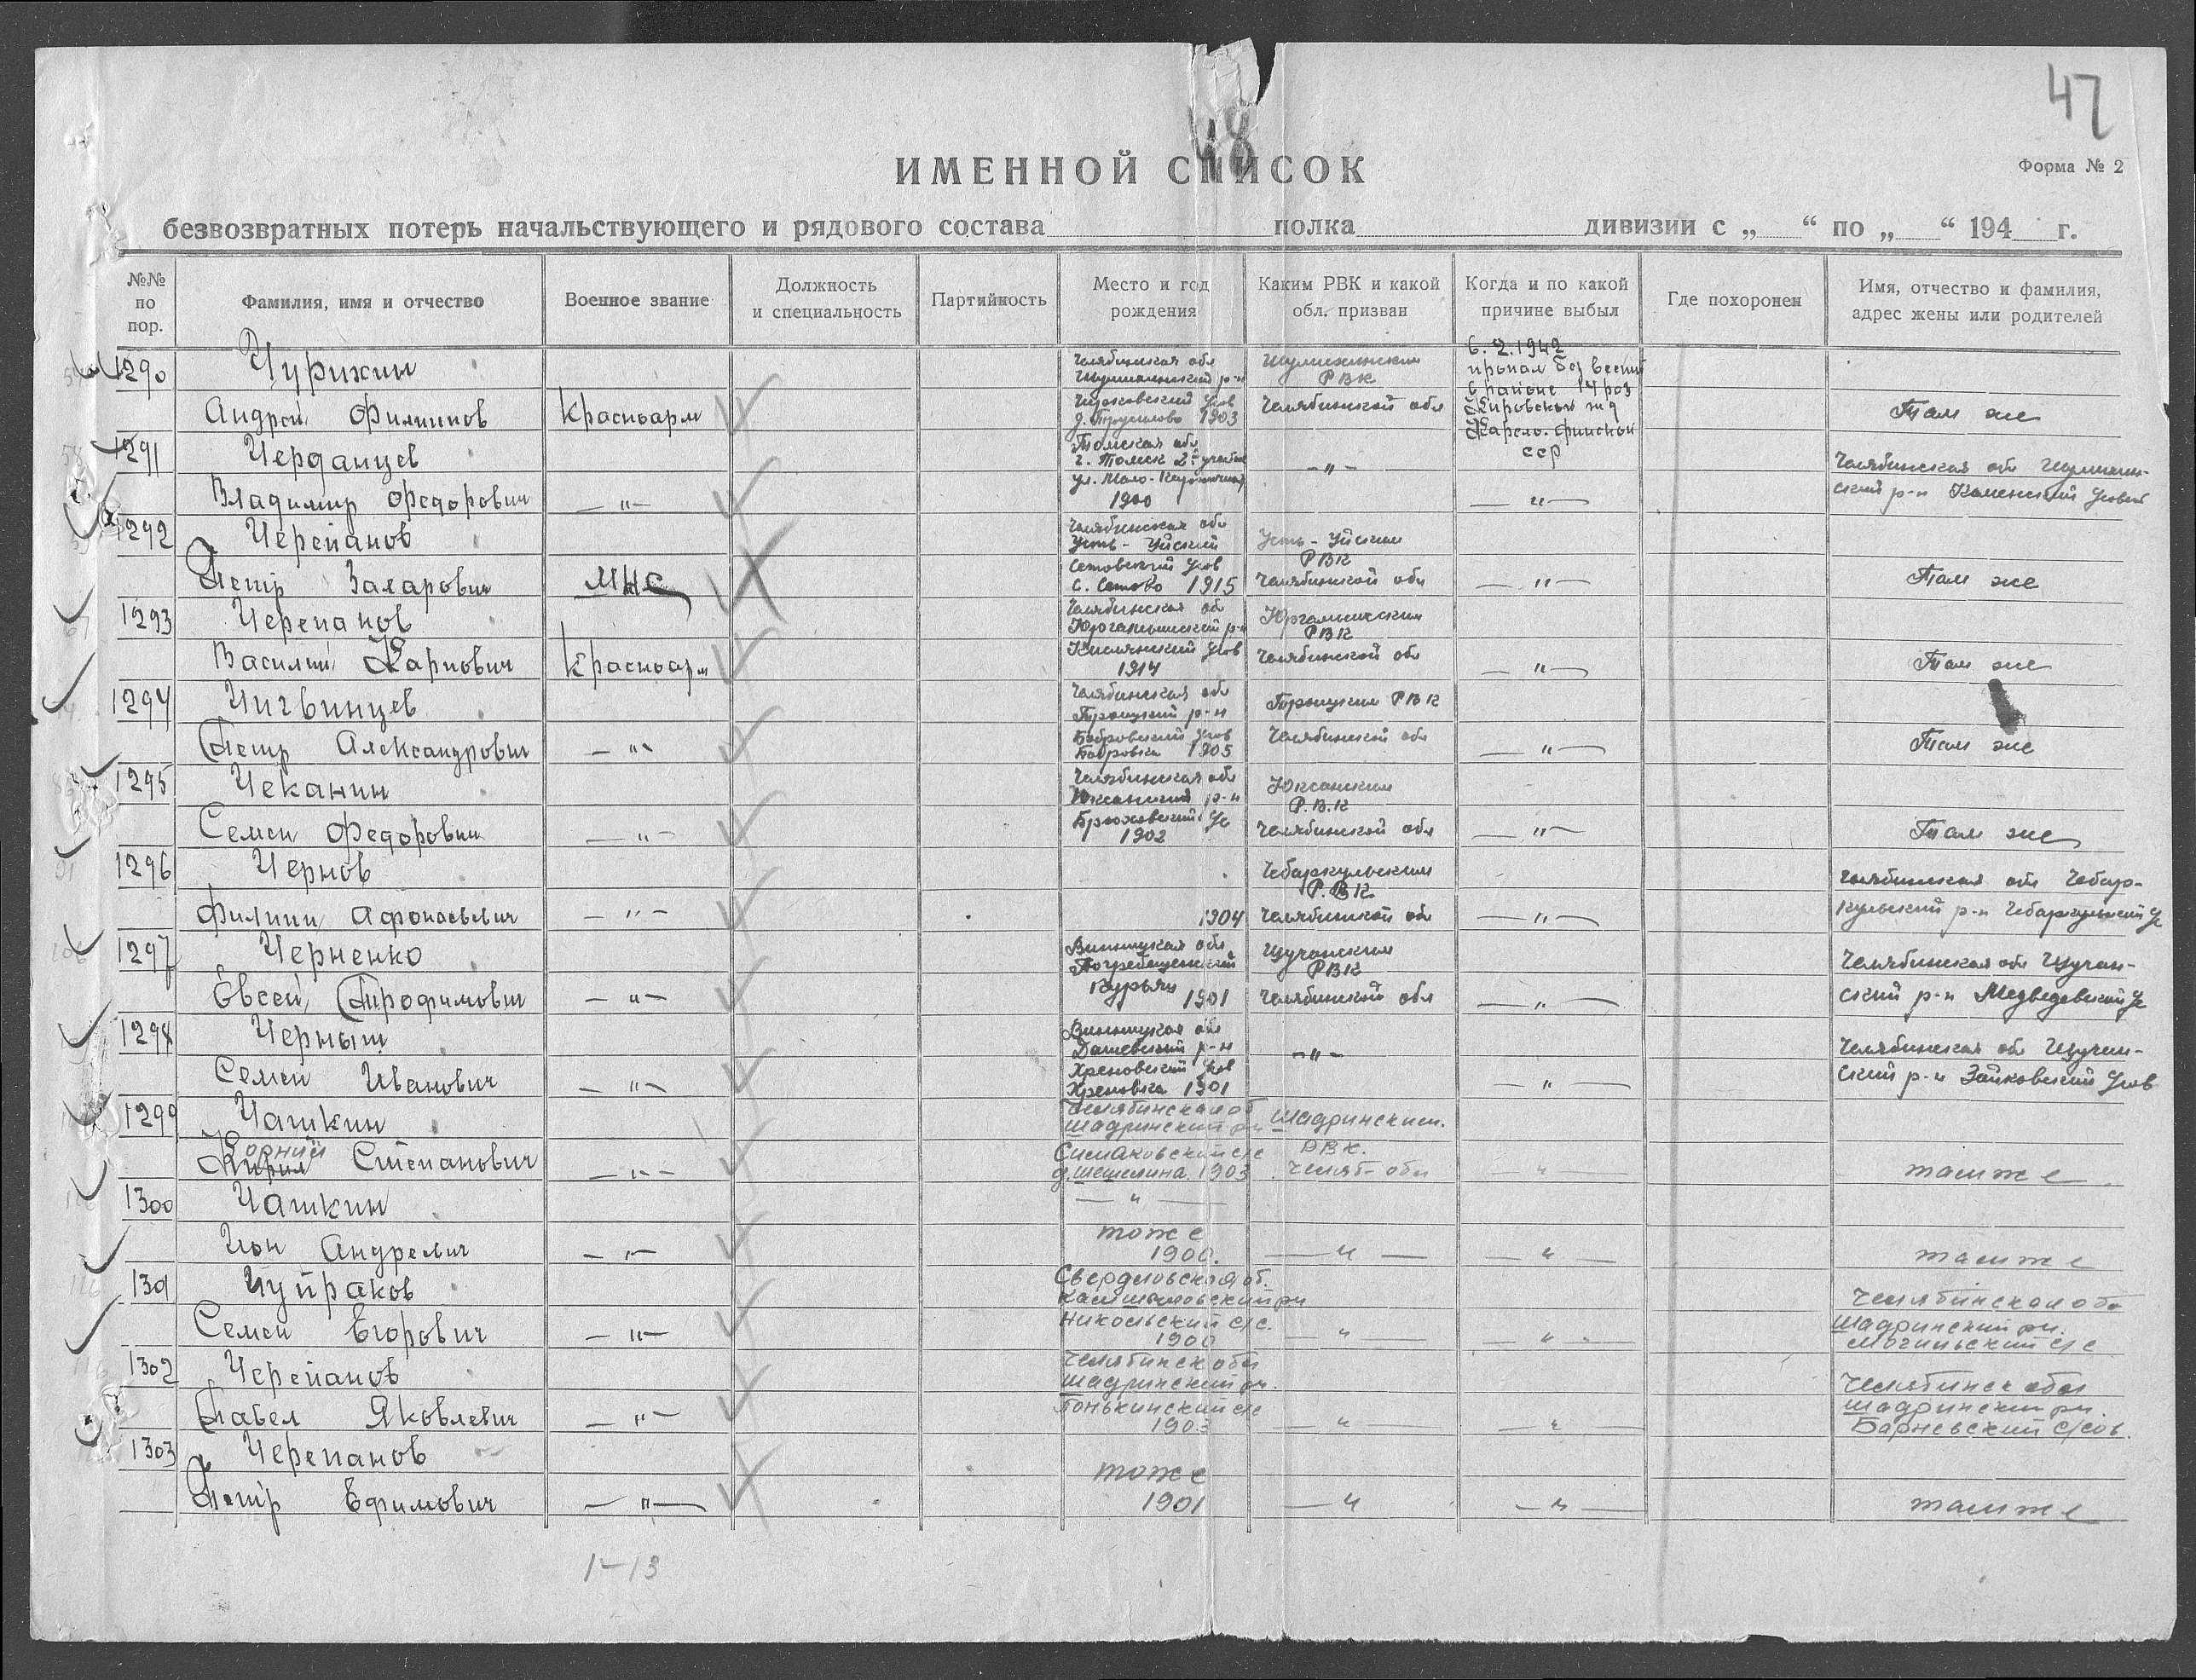 47
48
ИМЕННОЙ СПИСОК
Форма № 2
безвозвратных потерь начальствующего и рядового состава полка дивизии с „ “ по „ “ 194 г.
№№ по пор.
Фамилия, имя и отчество
Военное звание
Должность и специальность
Партийность
Место и год рождения
Каким РВК и какой обл. призван
Когда и по какой причине выбыл
Где похоронен
Имя, отчество и фамилия, адрес жены или родителей
1290 Чурикин Челябинская обл Шумихинским 6.2.1942
РВК пропал без вести
в районе 14 роз
Андрей Филиппов Красноарм 1903 Челябинской обл Кировской жд Там же
Карело-финской
ССР
1291 Черданцев Томская обл —"— Челябинская обл Шумихин-
г. Томск
Владимир Федорович —"— ул. Мало- 1900 —"— ский р-н Каменский
1292 Черепанов Челябинская обл Усть-Уйским
Усть-Уйский РВК
Петр Захарович МНС с. 1915 Челябинской обл —"— Там же
1293 Черепанов Челябинская обл Юргамышским
Юргамышский р-н РВК
Василий Карпович Красноарм 1914 Челябинской обл —"— Там же
1294 Чигвинцев Челябинская обл Троицким РВК
Троицкий р-н
Петр Александрович —"— Бобровский Бобровка 1905 Челябинской обл —"— Там же
1295 Чеканин Челябинская обл
р-н Р.В.К
Семен Федорович —"— 1902 Челябинской обл —"— Там же
1296 Чернов Чебаркульским Челябинская обл Чебар-
Р.В.К
Филипп Афонасьевич —"— 1904 Челябинской обл —"— кульский р-н Чебаркульский
1297 Черненко Винницкая обл Щучанским Челябинская обл Щучан-
Погребищенский РВК
Евсей Трофимович —"— 1901 Челябинской обл —"— ский р-н Медведевский
1298 Черныш Винницкая обл —"— Челябинская обл Щучан-
Дашевский р-н
Семен Иванович —"— Хреновский Хреновка 1901 —"— ский р-н Зайковский
1299 Чашкин Челябинская об Шадринским
Шадринский рн РВК.
Корний
Кирил Степанович —"— Симаковский с/с 1903 Челяб-обл —"— там же
1300 Чашкин —"—
тоже
Ион Андреевич —"— 1900. —"— —"— там же
1301 Чупраков Свердловская об. Челябинская обл
рн
Семен Егорович —"— Никольский с/с. 1900 —"— —"— Шадринский рн.
1302 Черепанов Челябинск обл Челябинск обл
Шадринский рн. Шадринский рн.
Павел Яковлевич —"— 1903 —"— —"— Барневский с/сов.
1303 Черепанов тоже
Петр Ефимович —"— 1901 —"— —"— там же
1-13